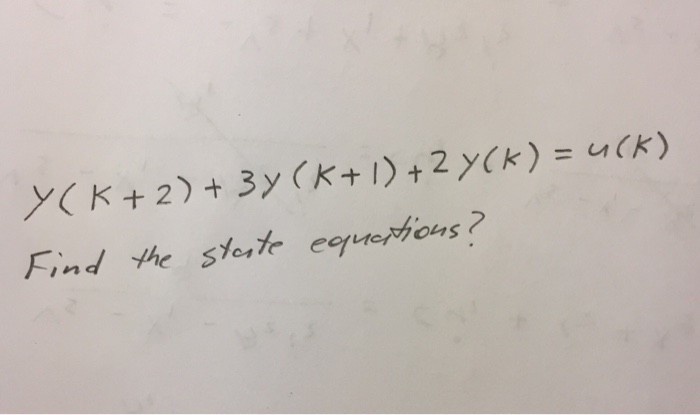 y(K+2) + 3y(K+1) + 2y(K) = u(K)
Find the state equations?